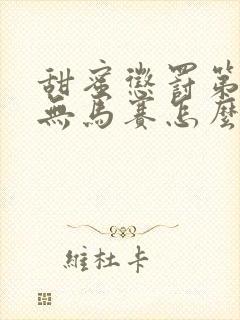 甜蜜懲罰第
無馬賽怎麼
維杜卡